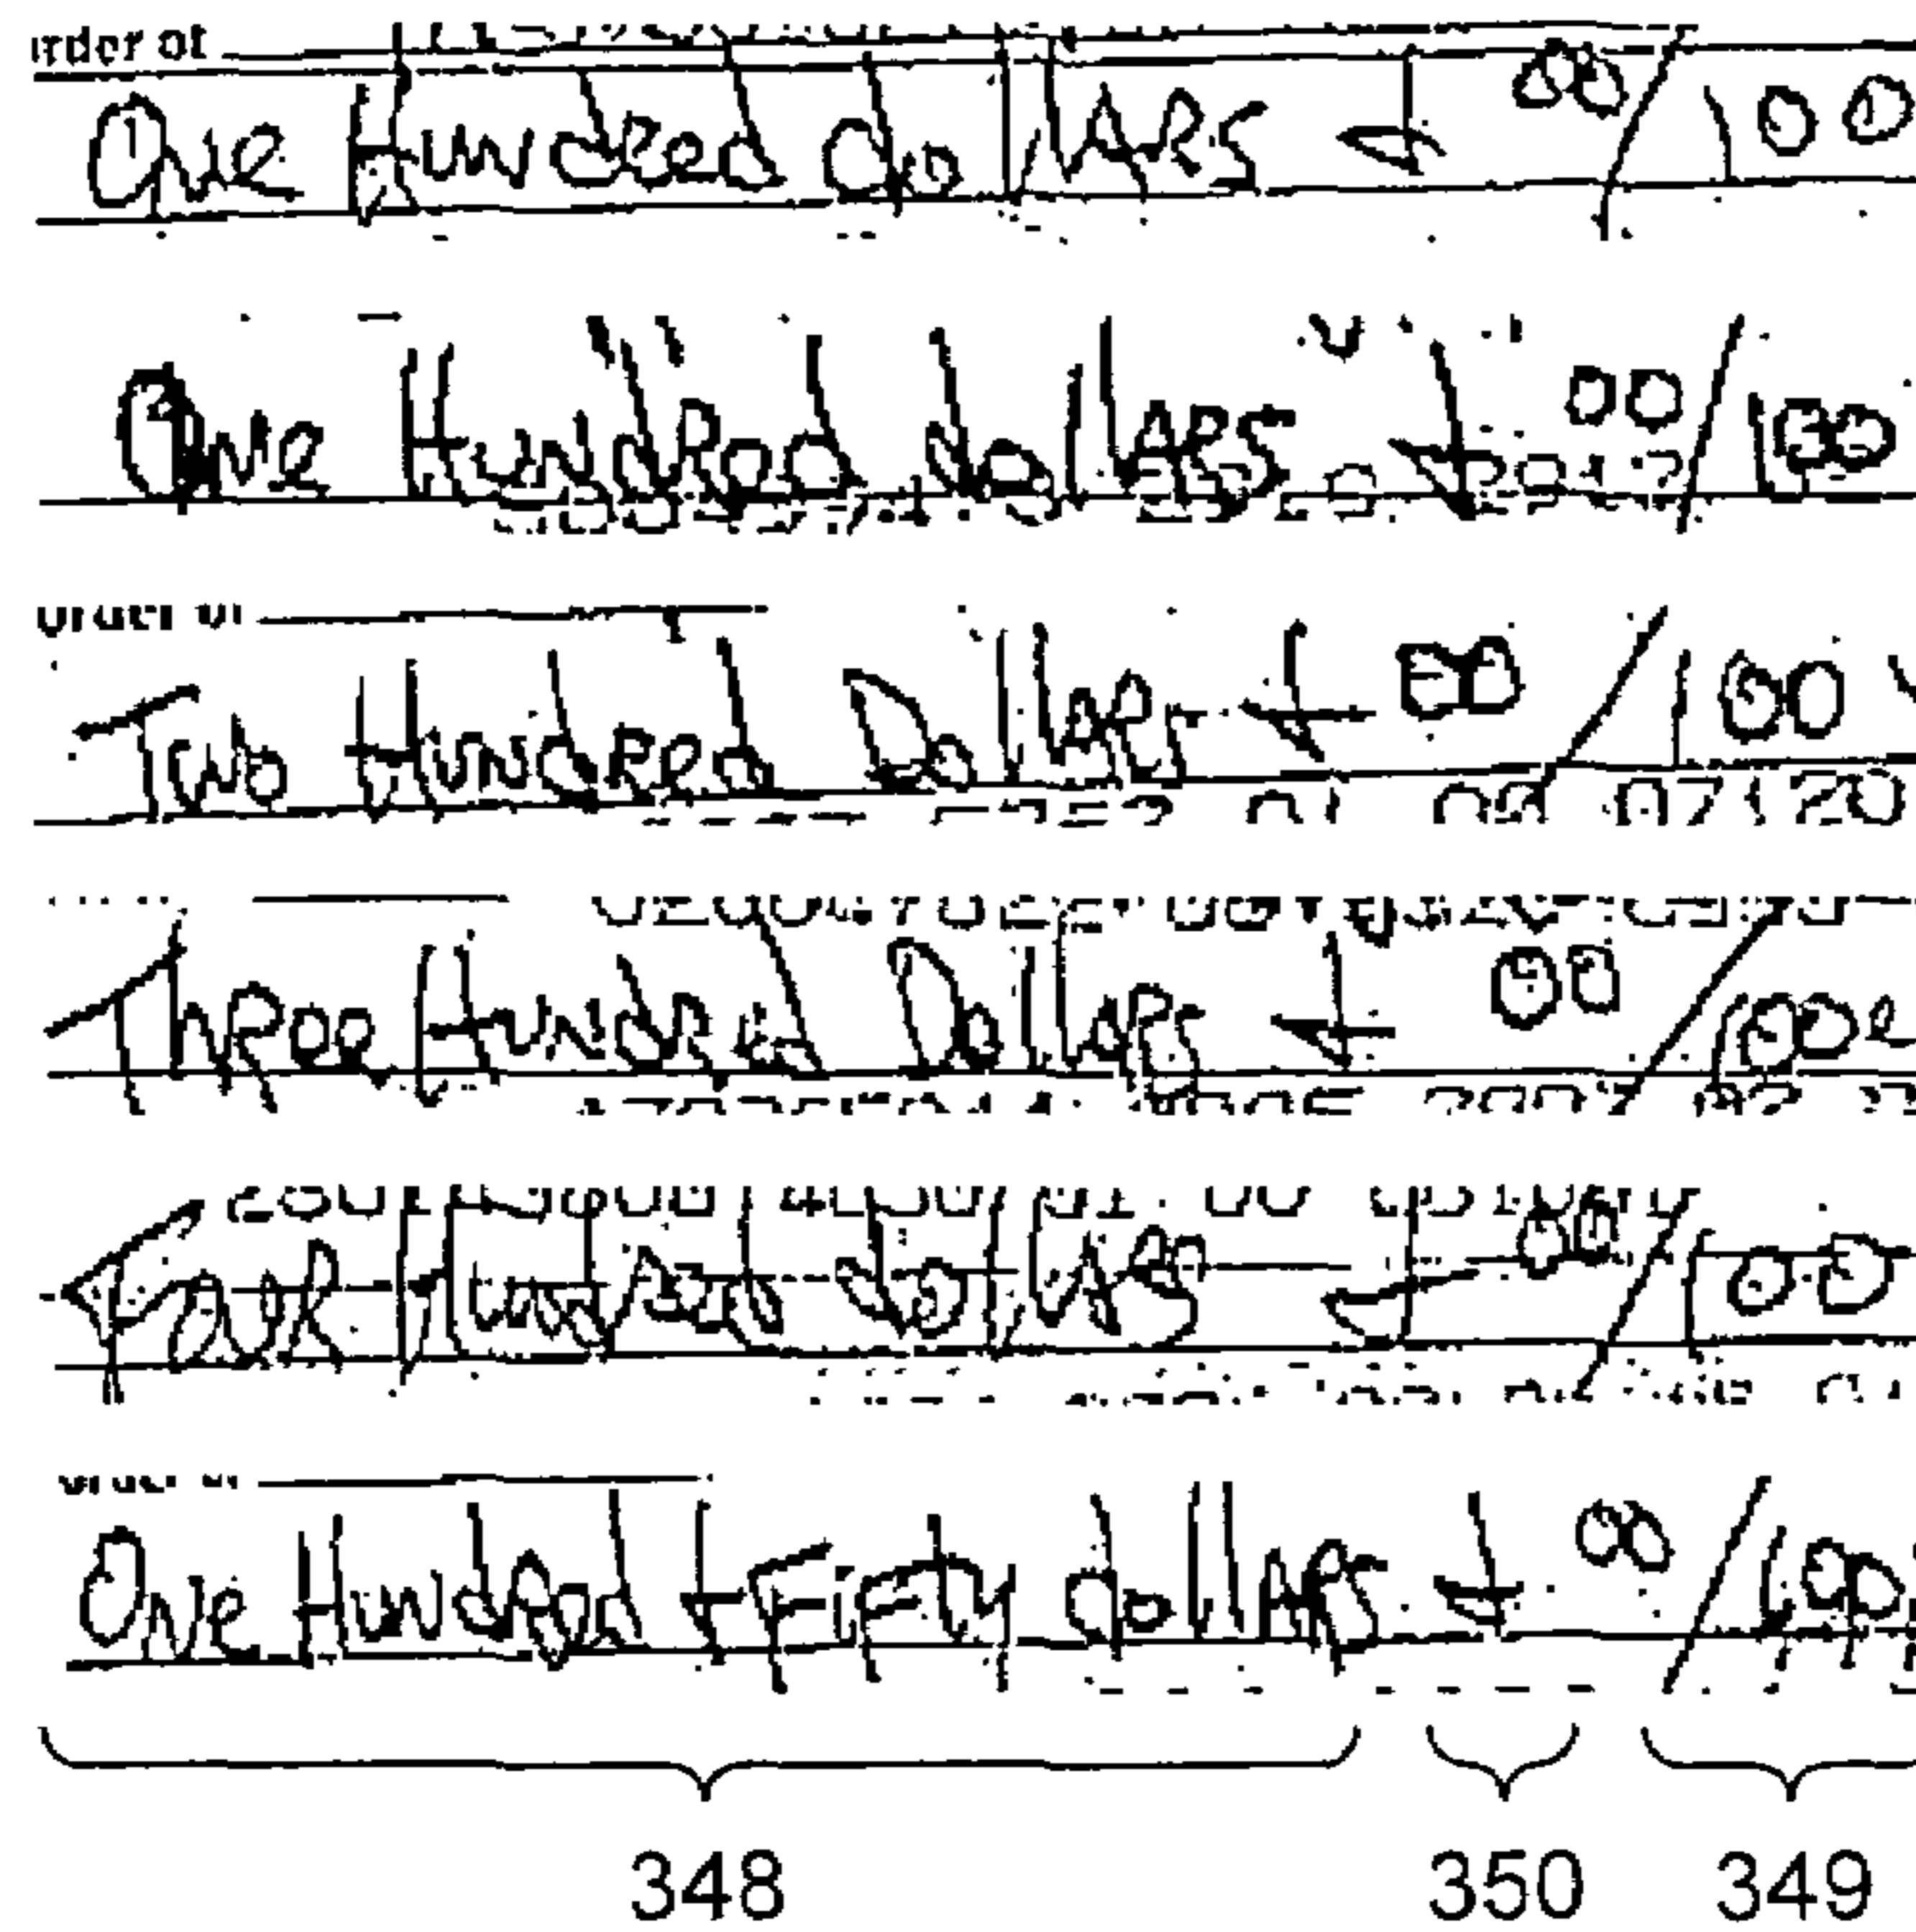 order of
One Hundred dollars + 00/100
One Hundred dollars + 00/100
order of
Two Hundred Dollars + 00/100
Three Hundred Dollars + 00/100
Four Hundred dollars + 00/100
order of
One Hundred + Fifty dollars + 00/100
348 350 349